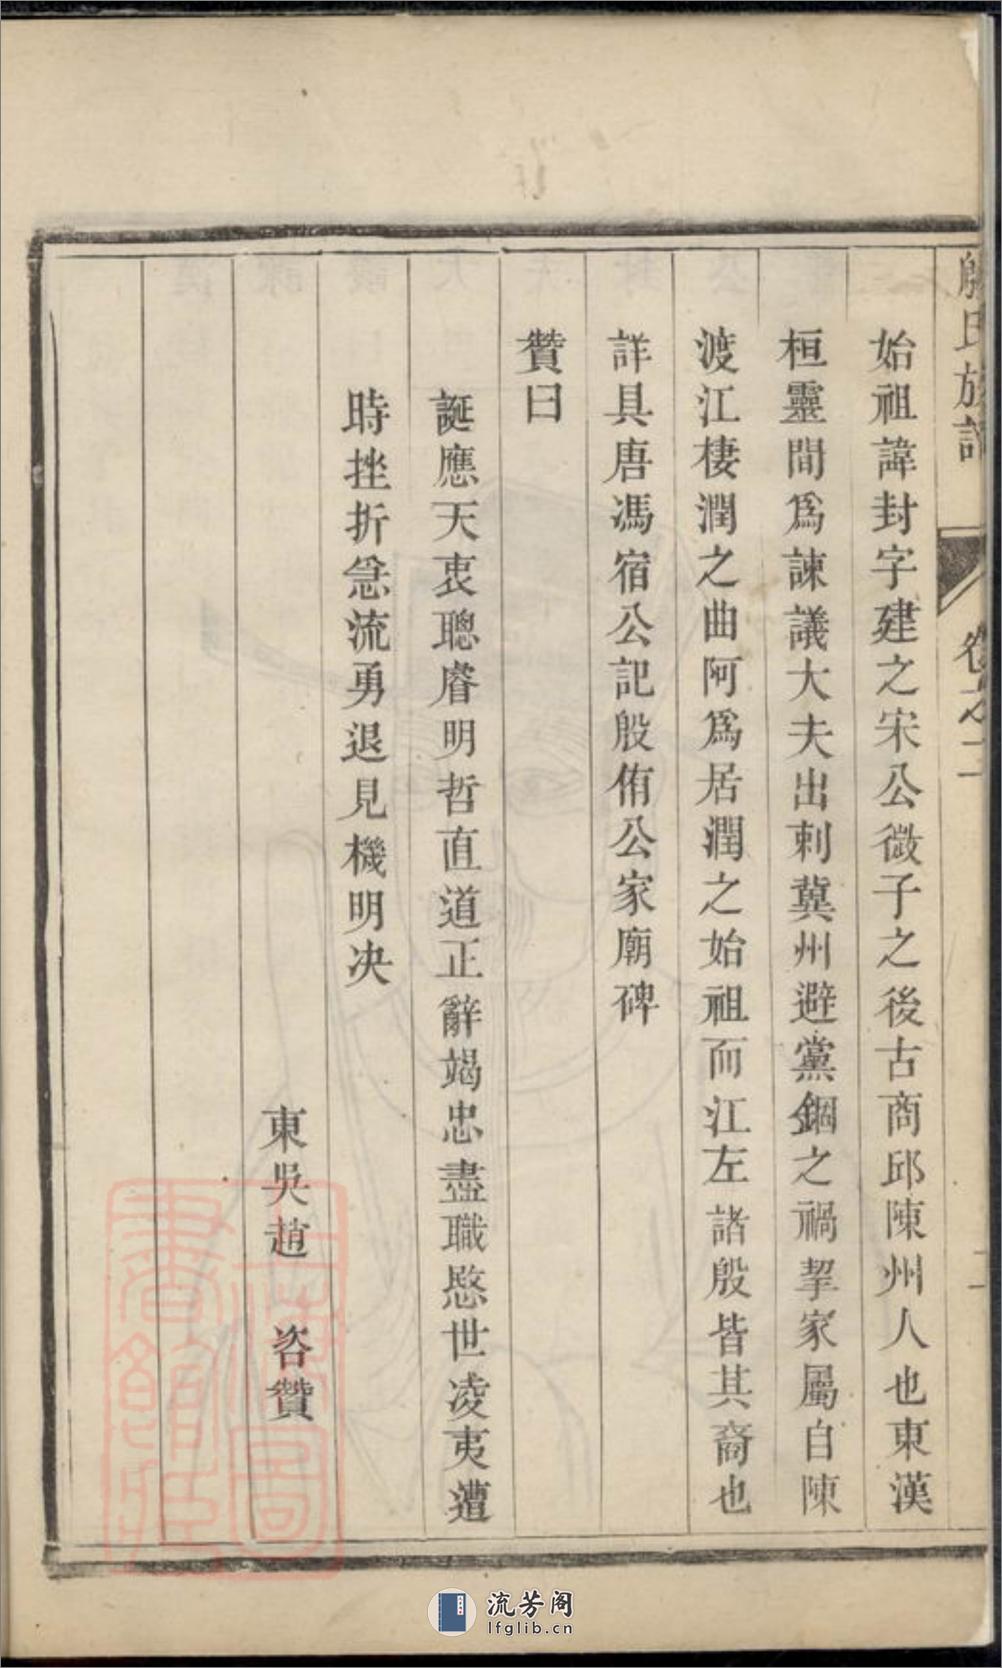 殷氏族譜
卷之二
一
始祖諱封字建之宋公微子之後古商邱陳州人也東漢
桓靈間爲諫議大夫出刺冀州避黨錮之禍挈家屬自陳
渡江棲潤之曲阿爲居潤之始祖而江左諸殷皆其裔也
詳具唐馮宿公記殷侑公家廟碑
贊曰
誕應天衷聰睿明哲直道正辭竭忠盡職愍世凌夷遭
時挫折急流勇退見機明決
東吳趙　咨贊
上海圖書館藏
流芳阁
lfglib.cn